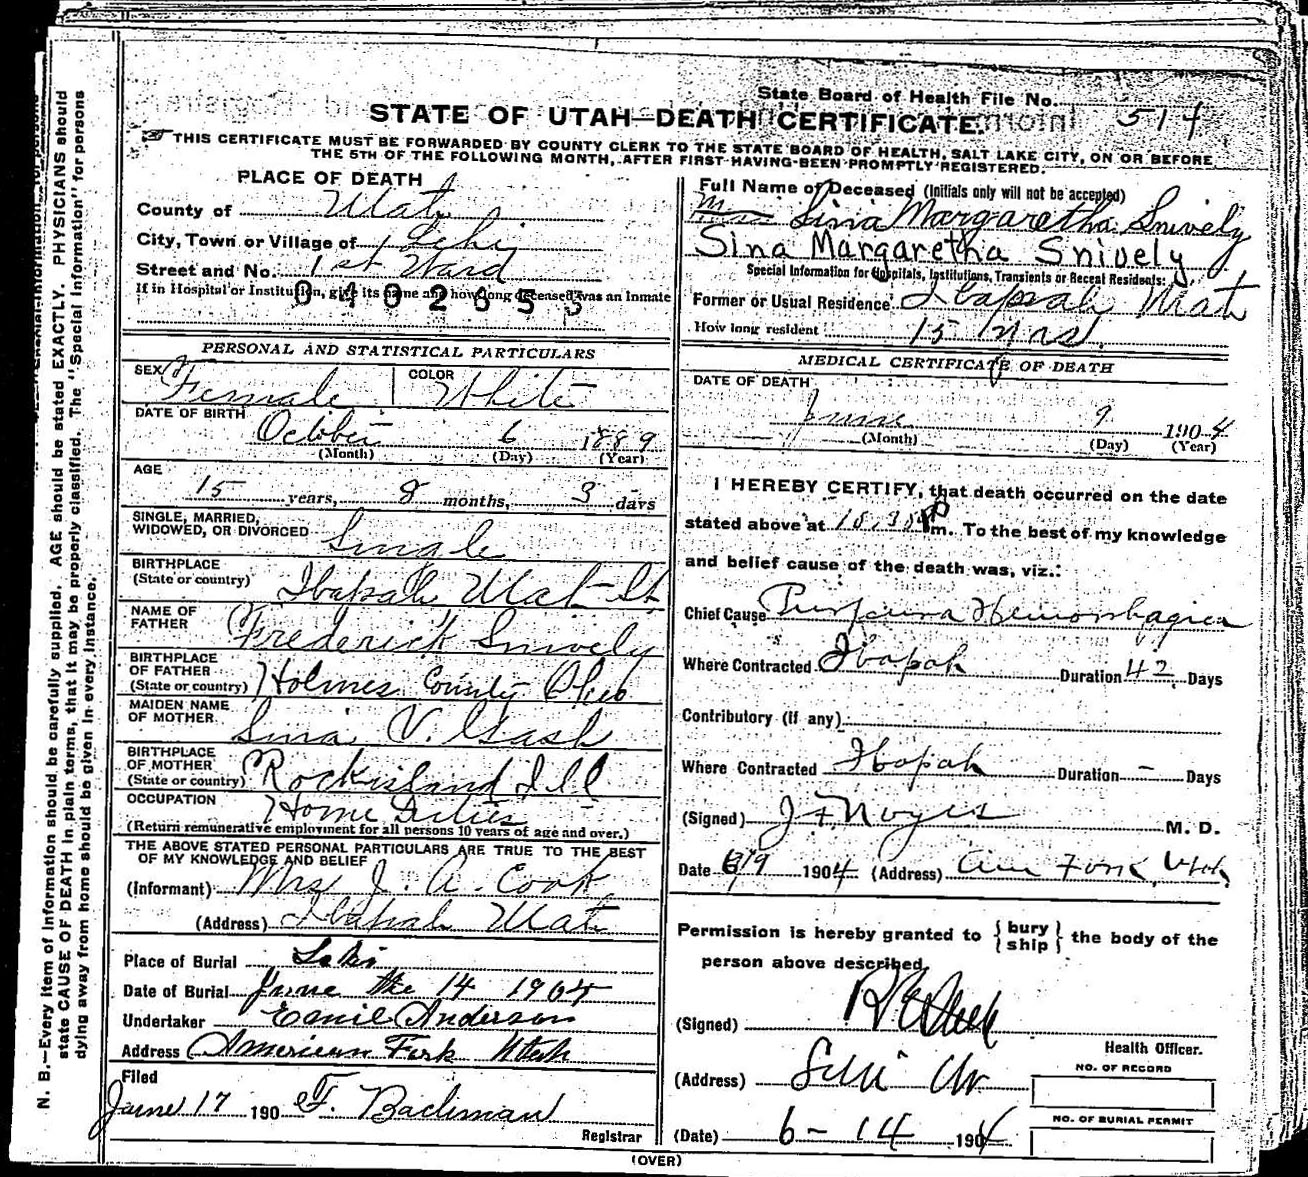 State Board of Health File No. 514
STATE OF UTAH—DEATH CERTIFICATE.
THIS CERTIFICATE MUST BE FORWARDED BY COUNTY CLERK TO THE STATE BOARD OF HEALTH, SALT LAKE CITY, ON OR BEFORE
THE 5TH OF THE FOLLOWING MONTH, AFTER FIRST HAVING BEEN PROMPTLY REGISTERED.
PLACE OF DEATH
County of Utah
City, Town or Village of Lehi
Street and No. 1st Ward
If in Hospital or Institution, give its name and how long deceased was an Inmate
0402653
PERSONAL AND STATISTICAL PARTICULARS
SEX Female COLOR White
DATE OF BIRTH
October 6 1889
(Month) (Day) (Year)
AGE
15 years, 8 months, 3 days
SINGLE, MARRIED,
WIDOWED, OR DIVORCED Single
BIRTHPLACE
(State or country) Ibapah Utah
NAME OF
FATHER Frederick Snively
BIRTHPLACE
OF FATHER
(State or country) Holmes County Ohio
MAIDEN NAME
OF MOTHER Sina V. Gash
BIRTHPLACE
OF MOTHER
(State or country) Rockisland Ill
OCCUPATION Home Duties
(Return remunerative employment for all persons 10 years of age and over.)
THE ABOVE STATED PERSONAL PARTICULARS ARE TRUE TO THE BEST
OF MY KNOWLEDGE AND BELIEF
(Informant) Mrs J. A. Cook
(Address) Ibapah Utah
Place of Burial Lehi
Date of Burial June the 14 1904
Undertaker Anderson
Address American Fork Utah
Filed
June 17 190 F. Bachman
Registrar
Full Name of Deceased (Initials only will not be accepted)
Sina Margaretha Snively
Sina Margaretha Snively
Special Information for Hospitals, Institutions, Transients or Recent Residents:
Former or Usual Residence Ibapah Utah
How long resident 15 Yrs.
MEDICAL CERTIFICATE OF DEATH
DATE OF DEATH
June 9 1904
(Month) (Day) (Year)
I HEREBY CERTIFY, that death occurred on the date
stated above at m. To the best of my knowledge
and belief cause of the death was, viz.:
Chief Cause Purpura Hemorrhagica
Where Contracted Ibapah Duration 42 Days
Contributory (If any)
Where Contracted Ibapah Duration - Days
(Signed) J F Noyes M. D.
Date 6/9 1904 (Address) Am Fork, Utah
Permission is hereby granted to {bury
ship} the body of the
person above described
(Signed)
Health Officer.
(Address) Lehi
NO. OF RECORD
NO. OF BURIAL PERMIT
(Date) 6-14 1904
(OVER)
N. B.—Every item of information should be carefully supplied. AGE should be stated EXACTLY. PHYSICIANS should
state CAUSE OF DEATH in plain terms, that it may be properly classified. The "Special Information" for persons
dying away from home should be given in every instance.